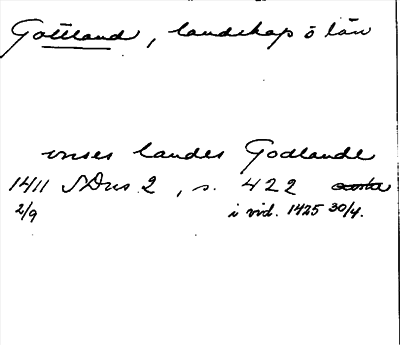 Gottland, landskap o län
vnses landes Godlande
1411 SDns 2, s. 422
2/9 i vid. 1425 30/4.